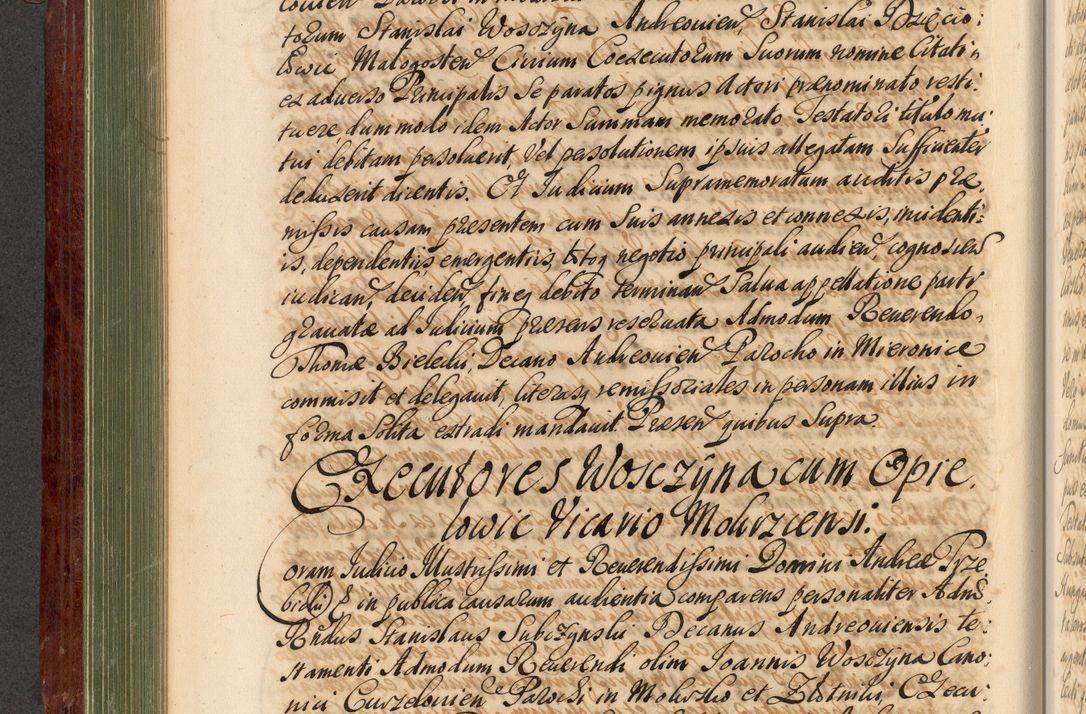 torum Stanislai Wosczÿna Andreouien, Stanislai Dzięcio:
łowic Małogosten Civium Coexecutorum Suorum nomine Citati,
ex aduerso Principalis Se paratos pignus Actori prænominato resti:
tuere dummodo idem Actor Summam memorato Testatori titulo mu:
tui debitam persoluerit, Vel persolutionem ipsius allegatam Sufficienter
deduxerit dicentis. Et Iudicium Supramemoratum auditis præ,
missis causam præsentem cum Suis annexis et connexis, incidenti:
is, dependentiis emergentiis, totoq negotio principali audien, cognoscen
iudican, deciden, fineq debito terminan Salua appellatione parti
grauatæ ad Iudicium præsens reseruata Admodum Reuerendo,
Thomæ Bielecki, Decano Andreouien Parocho in Mieronice
commisit et delegauit, literasq remissoriales in personam illius in
forma Solita extradi mandauit Præsen quibus Supra.
Executores Wosczÿna cum Opie,
lowic Vicario Mokrzcensi.
Coram Iudicio Illustrissimi et Reuerendissimi Domini Andreæ Trze
bicki & in publica causarum audientia comparens personaliter Adm̃
Rñdus Stanislaus Subczÿnski Decanus Andreouiensis te:
stamenti Admodum Reuerendi olim Ioannis Wosczÿna Cano:
nici Curzelouien Parochi in Mokrzko et Złotniki, Execu: